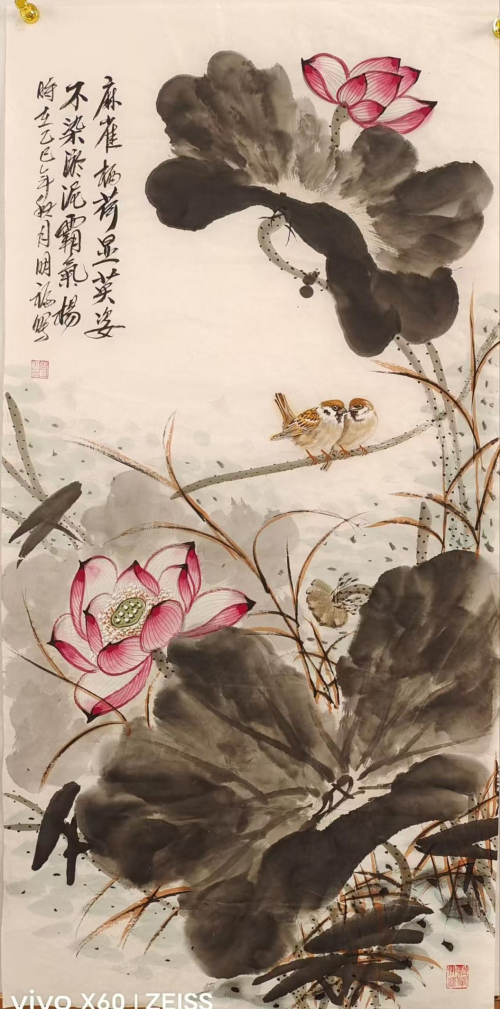 麻雀栖荷显英姿
不染淤泥霸氣楊
時在乙巳年秋月明福写
vivo X60 | ZEISS